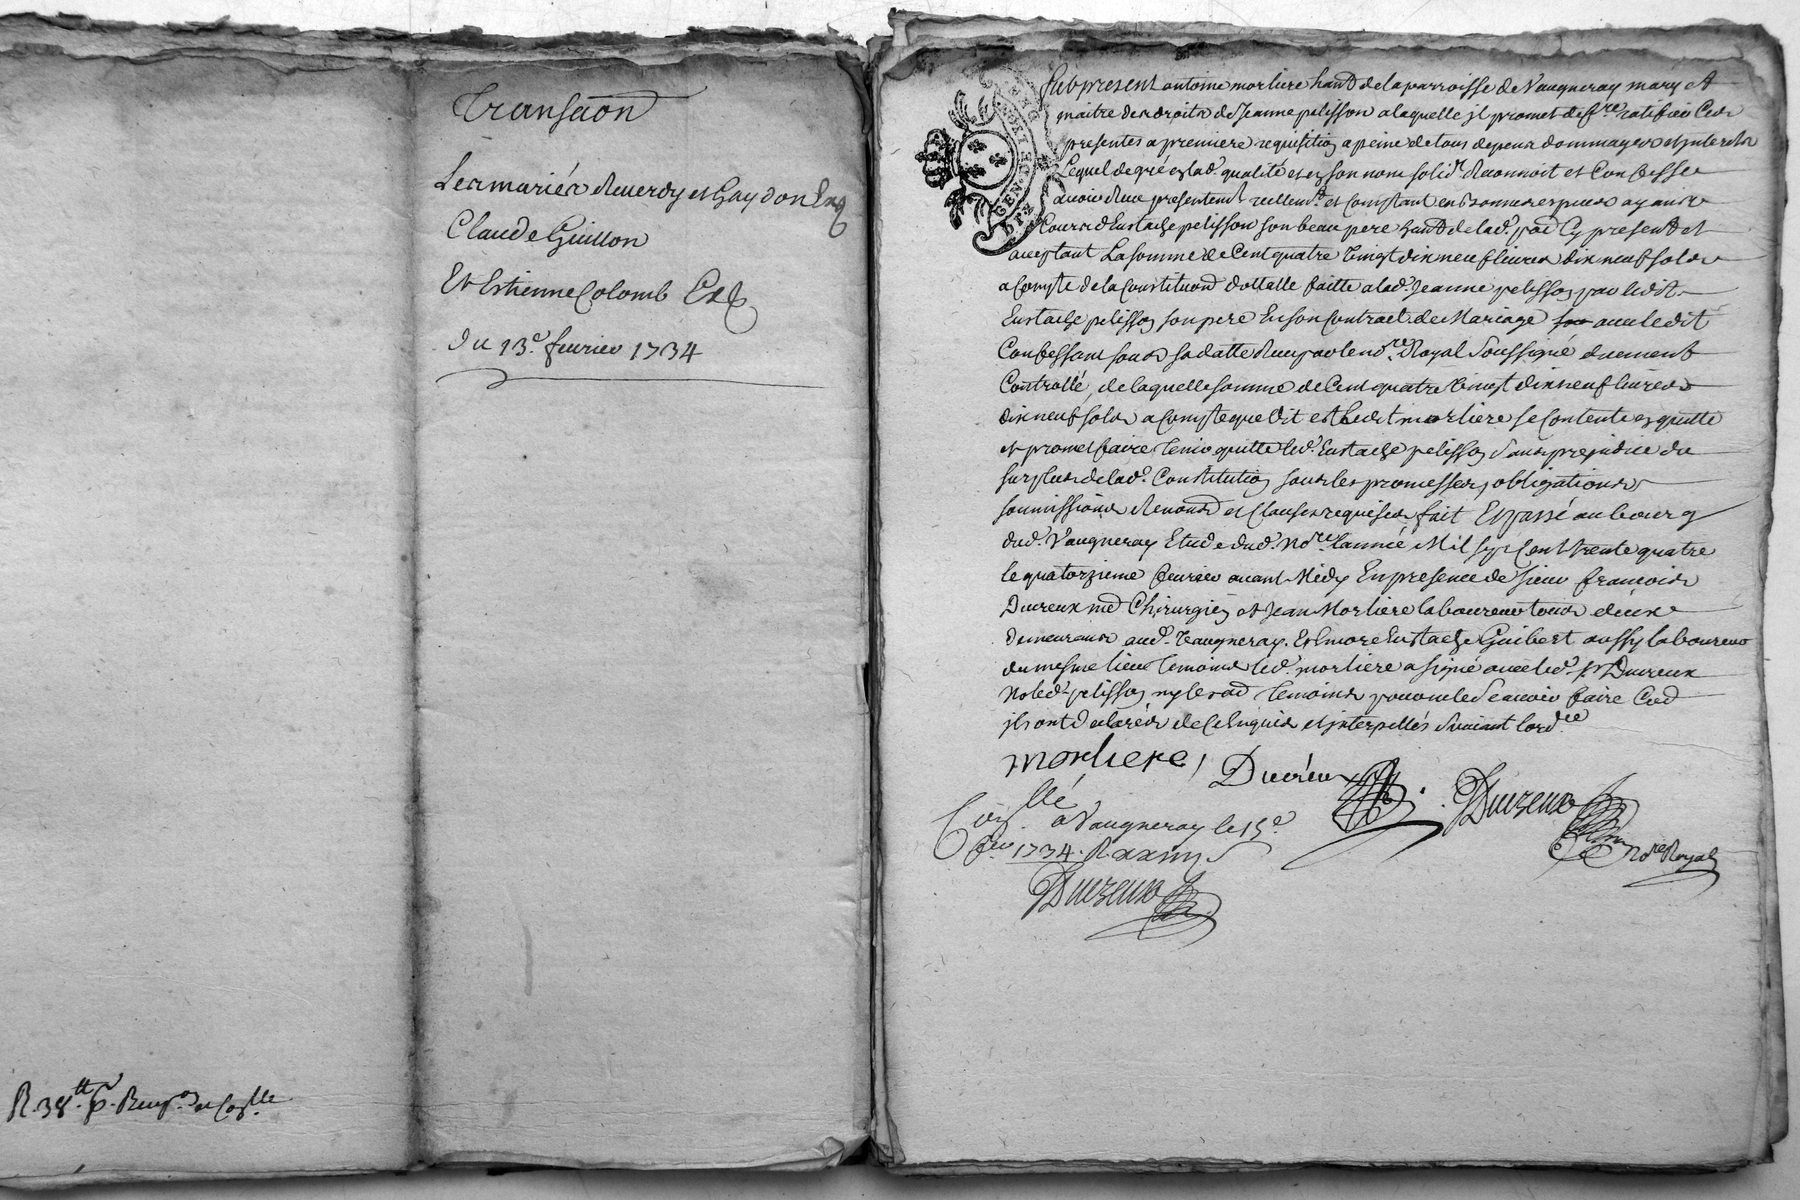 Transaon
Les mariés Reverdy et Gaydon
Claude Guillon
Et Estienne Colomb
du 13e. feuvrier 1734
R. 38
GEN. DE
Fut present antoine morliere hant de la parroisse de Vaugneray mary et
maitre des droits de Jeanne pelisson a laquelle il promet de fre ratifier Ces
presentes a premiere requisition a peine de tous depens dommages et interests
Lequel de gré esd. qualité et en son nom solid. Reconnoit et Confesse
avoir Receu presentemt reellemt et Comptant en bonnes especes ayant
Cours d'Eustache pelisson son beau pere hant de lad. par Cy present et
acceptant La somme de Cent quatre Vingt dix neuf livres dix neuf sols
a Compte de la Constituon dottalle faitte a lad. Jeanne pelisson par ledit
Eustache pelisson son pere En son Contract de Mariage avec ledit
Confessant sous sa datte Receu par le nore Royal Soussigné duement
Controllé, de laquelle somme de Cent quatre Vingt dix neuf livres
dix neuf sols a Compte que dit est Ledit morliere se Contente en quitte
et promet faire tenir quitte led. Eustache pelisson sans prejudice du
surplus de lad. Constitution sous les promesses, obligations
soumissions Renons et Clauses requises fait Et passé au bourg
dud. Vaugneray Etude dud. Nore l'année Mil sept Cent trente quatre
le quatorzieme feuvrier avant Midy En presence de sieur francois
Ducreux md Chirurgien et Jean Morliere laboureur tous deux
demeurans aud. Vaugneray. Et Eustache Guibert aussy laboureur
du mesme lieu temoins led. morliere a signé avec led. sr Ducreux
No led. pelisson ny les temoins pour ne le scavoir faire
ils ont declarés de Ce Enquis et interpellés suivant lordce
morliere, Ducreux Ducreux
Nore Royal
Conllé a Vaugneray le 15e
feu 1734. R
Ducreux